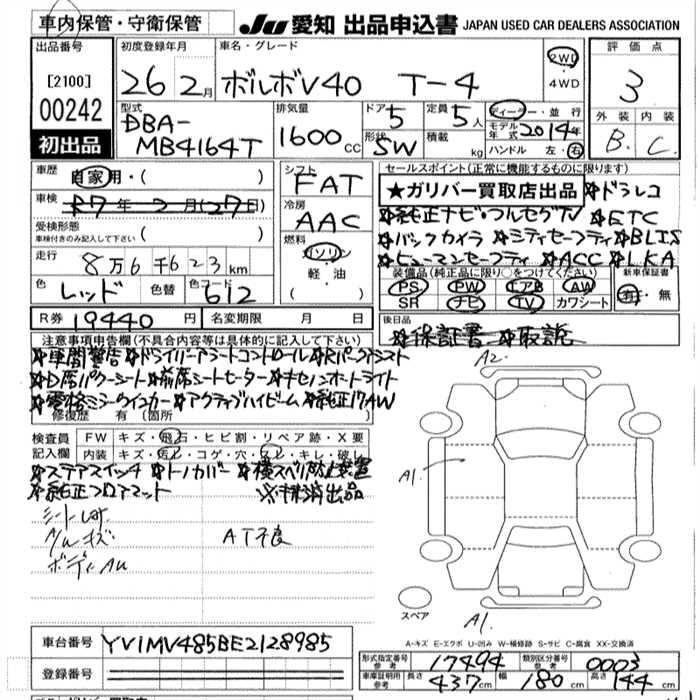 車内保管・守衛保管
JU 愛知 出品申込書 JAPAN USED CAR DEALERS ASSOCIATION
出品番号
[2100]
00242
初出品
初度登録年月
26 2月
車名・グレード
ボルボV40 T-4
2WD
4WD
評価点
3
外装 内装
B. C.
型式
DBA-
MB4164T
排気量
1600cc
ドア
5
定員
5人
形状
SW
積載
kg
ディーラー・並行
モデル年式 2014年
ハンドル 左・右
車歴 自家用・( )
車検 R7年2月(27日)
受検形態
車検付きのみ記入して下さい ( )
走行 8万6千623km
色 レッド 色替 色コード 612
シフト
FAT
冷房
AAC
燃料
ガソリン
軽・油
( )
セールスポイント(正常に機能するものに限ります)
★ガリバー買取店出品 ドラレコ
純正ナビ・フルセグTV ETC
バックカメラ シティセーフティ BLIS
ヒューマンセーフティ ACC LKA
装備品(純正品に限り○をつけてください)
PS PW エアB AW
SR ナビ TV カワシート
新車保証書
有・無
R券 19440円 名変期限 月 日
後日品
保証書 取説
注意事項申告欄(不具合内容等は具体的に記入して下さい)
車間警告 ドライバーアラートコントロール Rパークアシスト
D席パワーシート 前席シートヒーター キセノンオートライト
電格ミラーウインカー アクティブハイビーム 純正17AW
修復歴 有(箇所
検査員
記入欄
FW キズ・飛石・ヒビ割・リペア跡・X要
内装 キズ・汚レ・コゲ・穴・スレ・キレ・破レ
ステアスイッチ トノカバー 横スベリ防止装置
純正フロアマット ※抹消出品
AT不良
A2.
A1.
A1.
スペア
A-キズ E-エクボ U-凹み W-補修跡 S-サビ C-腐食 XX-交換済
車台番号 YV1MV485BE2128985
登録番号
形式指定番号
参考
17494
類別区分番号
参考
0003
車庫証明用
参考
長さ 437cm 幅 180cm 高さ 144cm